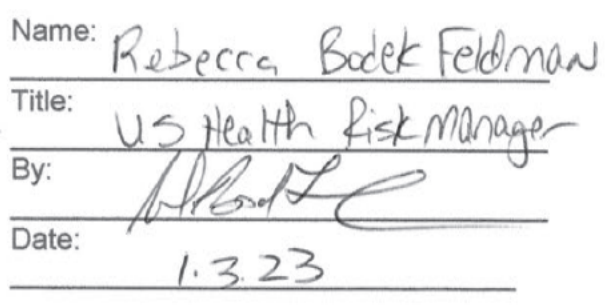 Name: Rebecca Bodek Feldman
Title: US Health Risk Manager
By:
Date: 1.3.23